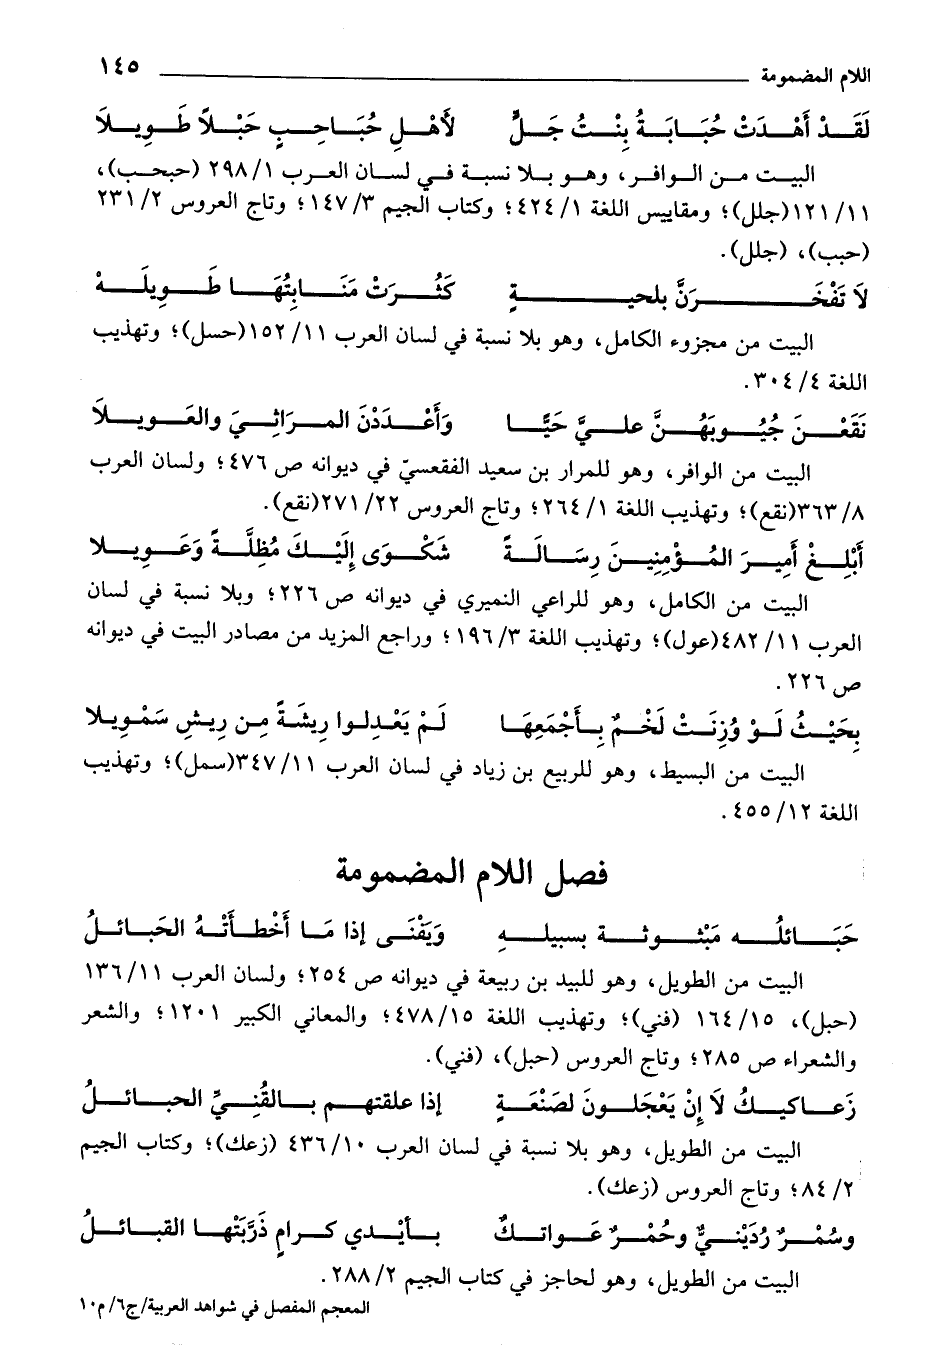 اللام المضمومة ١٤٥
لَقَدْ أَهْدَتْ حُبَابَةُ بِنْتُ جَلٍّ لأَهْلِ حُبَاحِبٍ حَبْلاً طَوِيلاَ
البيت من الوافر، وهو بلا نسبة في لسان العرب ٢٩٨/١ (حبحب)،
١٢١/١١(جلل)؛ ومقاييس اللغة ٤٢٤/١؛ وكتاب الجيم ١٤٧/٣؛ وتاج العروس ٢٣١/٢
(حبب)، (جلل).
لاَ تَفْخَرَنَّ بلحيةٍ كَثُرَتْ مَنَابِتُهَا طَوِيلَهْ
البيت من مجزوء الكامل، وهو بلا نسبة في لسان العرب ١٥٢/١١(حسل)؛ وتهذيب
اللغة ٣٠٤/٤.
نَقَعْنَ جُيُوبَهُنَّ عليَّ حَيًّا وَأَعْدَدْنَ المرَاثِيَ والعَوِيلاَ
البيت من الوافر، وهو للمرار بن سعيد الفقعسيّ في ديوانه ص ٤٧٦؛ ولسان العرب
٣٦٣/٨(نقع)؛ وتهذيب اللغة ٢٦٤/١؛ وتاج العروس ٢٧١/٢٢(نقع).
أَبْلِغْ أَمِيرَ المُؤْمِنِينَ رِسَالَةً شَكْوَى إِلَيْكَ مُظِلَّةً وَعَوِيلا
البيت من الكامل، وهو للراعي النميري في ديوانه ص ٢٢٦؛ وبلا نسبة في لسان
العرب ٤٨٢/١١(عول)؛ وتهذيب اللغة ١٩٦/٣؛ وراجع المزيد من مصادر البيت في ديوانه
ص ٢٢٦.
بِحَيْثُ لَوْ وُزِنَتْ لَخْمٌ بِأَجْمَعِهَا لَمْ يَعْدِلوا رِيشَةً مِن رِيشِ سَمْوِيلا
البيت من البسيط، وهو للربيع بن زياد في لسان العرب ٣٤٧/١١(سمل)؛ وتهذيب
اللغة ٤٥٥/١٢.
فصل اللام المضمومة
حَبَائلُه مَبْثُوثة بسبيلِهِ وَيَفْنَى إذا مَا أَخْطأَتْهُ الحَبائلُ
البيت من الطويل، وهو للبيد بن ربيعة في ديوانه ص ٢٥٤؛ ولسان العرب ١٣٦/١١
(حبل)، ١٦٤/١٥ (فني)؛ وتهذيب اللغة ٤٧٨/١٥؛ والمعاني الكبير ١٢٠١؛ والشعر
والشعراء ص ٢٨٥؛ وتاج العروس (حبل)، (فني).
زَعاكيكُ لاَ إِنْ يَعْجَلونَ لصَنْعَةٍ إذا علقتهم بالقُنِيِّ الحبائلُ
البيت من الطويل، وهو بلا نسبة في لسان العرب ٤٣٦/١٠ (زعك)؛ وكتاب الجيم
٨٤/٢؛ وتاج العروس (زعك).
وسُمْرٌ رُدَيْنيٌّ وحُمْرٌ عَواتكٌ بأيْدي كرامٍ ذَرَّبَتْها القبائلُ
البيت من الطويل، وهو لحاجز في كتاب الجيم ٢٨٨/٢.
المعجم المفصل في شواهد العربية/ج٦/م١٠